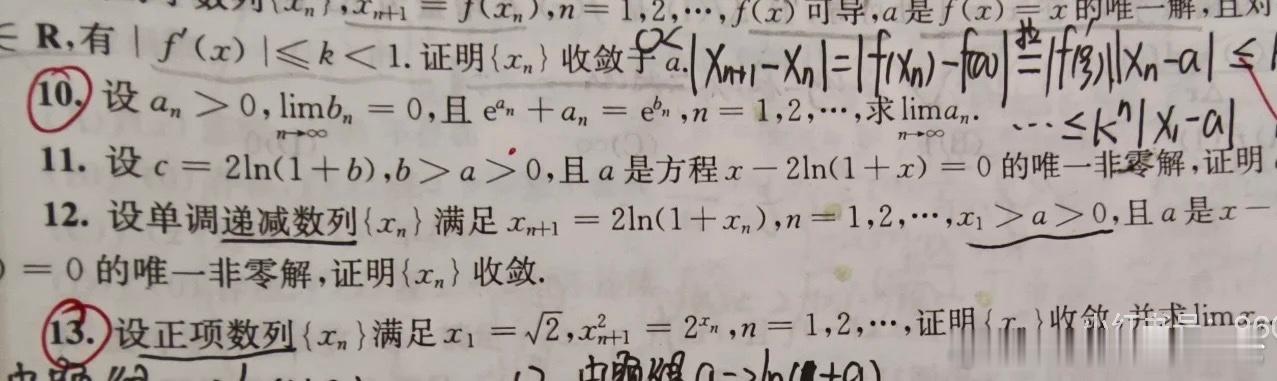 数列{xₙ}, xₙ₊₁ = f(xₙ), n = 1,2,⋯, f(x) 可导, a 是 f(x) = x 的唯一解, 且对
∈ R, 有 | f′(x) |≤ k < 1. 证明{xₙ} 收敛于 a. |Xₙ₊₁-Xₙ|=|f(Xₙ)-f(a)| 拉= |f′(ξ)||Xₙ-a| ≤
10. 设 aₙ > 0, lim_{n→∞} bₙ = 0, 且 e^{aₙ} + aₙ = e^{bₙ}, n = 1,2,⋯, 求 lim_{n→∞} aₙ. ⋯ ≤kⁿ|X₁-a|
11. 设 c = 2ln(1 + b), b > a > 0, 且 a 是方程 x − 2ln(1 + x) = 0 的唯一非零解, 证明
12. 设单调递减数列{xₙ} 满足 xₙ₊₁ = 2ln(1 + xₙ), n = 1,2,⋯, x₁ > a > 0, 且 a 是 x −
) = 0 的唯一非零解, 证明{xₙ} 收敛.
13. 设正项数列{xₙ}满足 x₁ = √2, x²ₙ₊₁ = 2^{xₙ}, n = 1,2,⋯, 证明{xₙ}收敛, 并求lim x